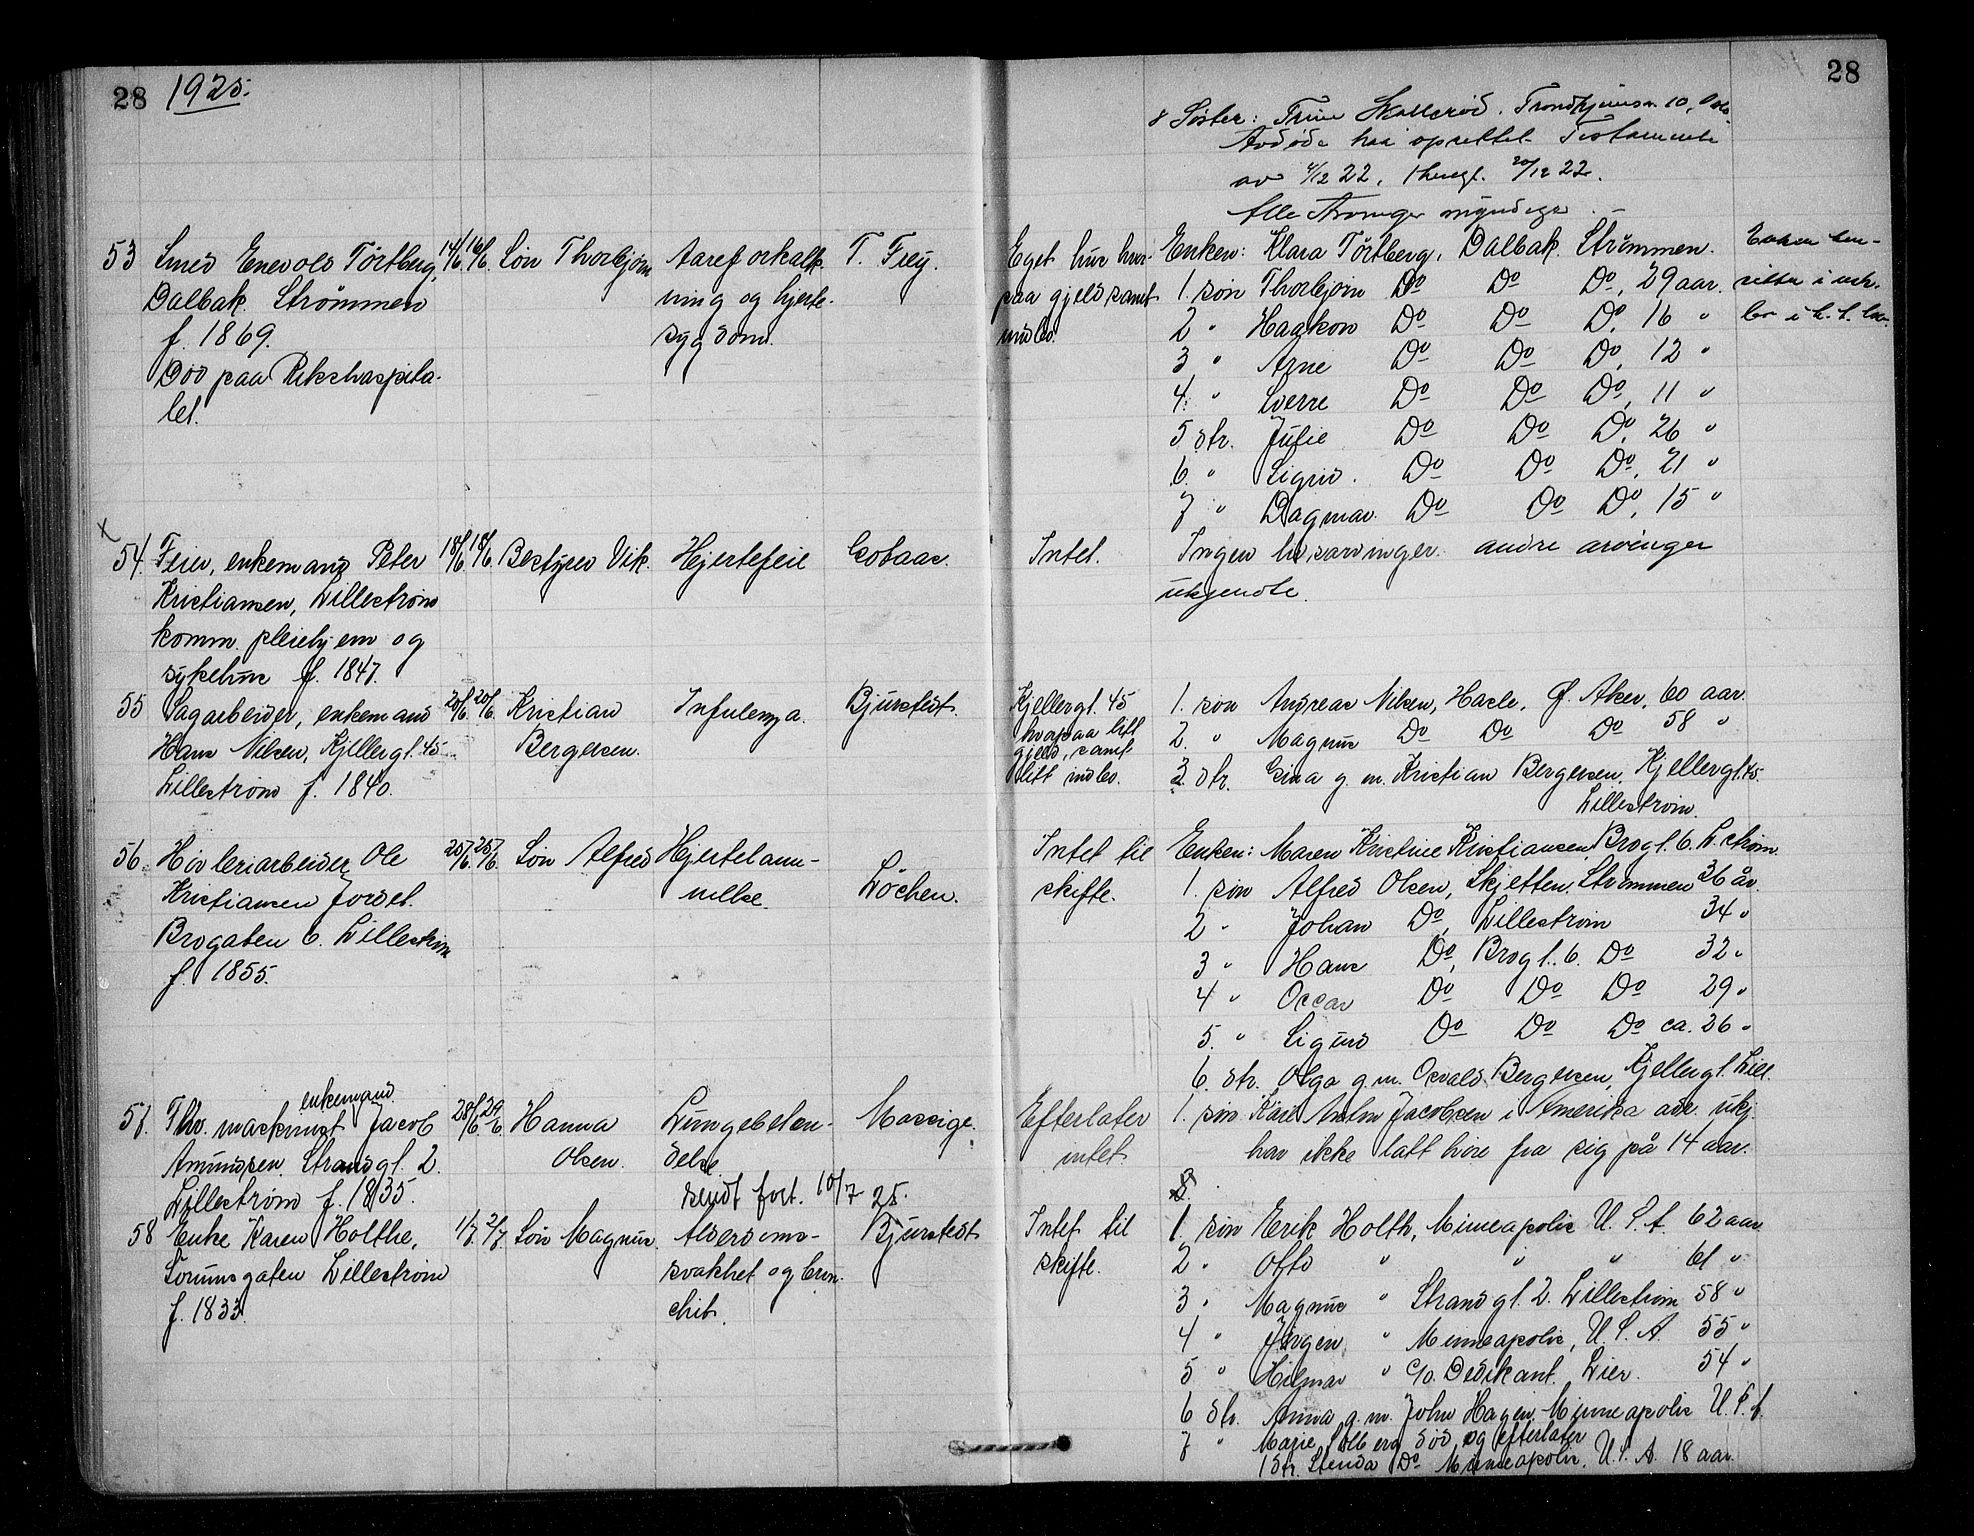 28 1925.
28
8 Søster: Trine Skallerød. Trondhjemsv. 10, Oslo
Avdøde har oprettet Testamente
av 4/12 22, thingl. 20/12 22.
Alle Arvinger myndige
53 Smed Enevold Törtberg, 14/6 16/6. Søn Thorbjørn Aareforkalk- T. Frey.
Dalbak. Strømmen ning og hjerte-
f. 1869. sygdom.
Död paa Rikshospita-
let.
Eget hus hvor- Enken: Klara Törtberg, Dalbak. Strömmen. Enken hen-
paa gjeld samt 1. søn Thorbjørn Do Do Do, 29 aar. sitter i uskif-
indbo. 2 " Haakon Do Do Do, 16 "
3 " Arne Do Do Do, 12 "
4. " Sverre Do Do Do, 11 "
5 dtr. Julie Do Do Do, 26 "
6. " Sigrid. Do Do Do, 21 "
7 " Dagmar. Do Do Do, 15 "
x
54. Feier, enkemand Peter 18/6. 18/6. Bestyrer Vik. Hjertefeil Gotaas.
Kristiansen, Lillestrøm
komm. pleiehjem og
sykehus f. 1847.
Intet. Ingen livsarvinger. andre arvinger
ukjendte.
55 Sagarbeider, enkemand 20/6. 20/6. Kristian Infulenza. Bjurstedt.
Hans Nilsen, Kjellergt. 45 Bergersen.
Lillestrøm f. 1840.
Kjellergt. 45 1. søn Andreas Nilsen, Hasle, Ø. Aker, 60 aar.
hvorpaa litt 2. " Magnus Do Do Do 58 "
gjeld, samt
litt indbo. 3 dtr. Gina g. m. Kristian Bergersen, Kjellergt. 45.
Lillestrøm.
56. Høvleriarbeider Ole 25/6. 25/6. Søn Alfred Hjertelam-
Kristiansen Jordet. melse. Løchen.
Brogaten 6. Lillestrøm
f. 1855.
Intet til Enken: Maren Kristine Kristiansen, Brogt. 6. L.strøm.
skifte. 1. søn Alfred Olsen, Skjetten, Strømmen 36 år.
2 " Johan Do, Lillestrøm 34 "
3 " Hans Do, Brogt. 6. Do 32 "
4 " Oscar Do Do Do 29 "
5. " Sigurd Do Do Do ca. 26 "
6. dtr. Olga g. m. Osvald Bergersen, Kjellergt. Lill.
enkemand
57. Fhv. maskinist Jacob 28/6. 29/6. Hanna Lungebeten- Massige.
Amundsen. Strandgt. 2. Olsen. delse
Lillestrøm f. 1835. sendt fort. 10/7 25.
Efterlater 1. søn Karl Anton Jacobsen i Amerika adr. ukj.
intet. har ikke latt høre fra sig på 14 aar.
58 Enke Karen Holthe, 1/7. 2/7. Søn Magnus. Alderdoms- Bjurstedt
Sørumsgaten Lillestrøm svakhet og bron-
f. 1833. chit.
Intet til 1. søn Erik Holth, Minneapolis U. S. A. 62 aar
skifte. 2 " Otto " " " 61 "
3 " Magnus " Strandgt. 2. Lillestrøm 58 "
4 " Jørgen " Minneapolis, U. S. A. 55 "
5 " Hilmar " c/o. Dedikant. Lier. 54 "
6 dtr. Anna g. m. John Hagen, Minneapolis U. S. A.
7 " Marie Solberg død og efterlater
1 dtr. Do Minneapolis. U. S. A. 18 aar.